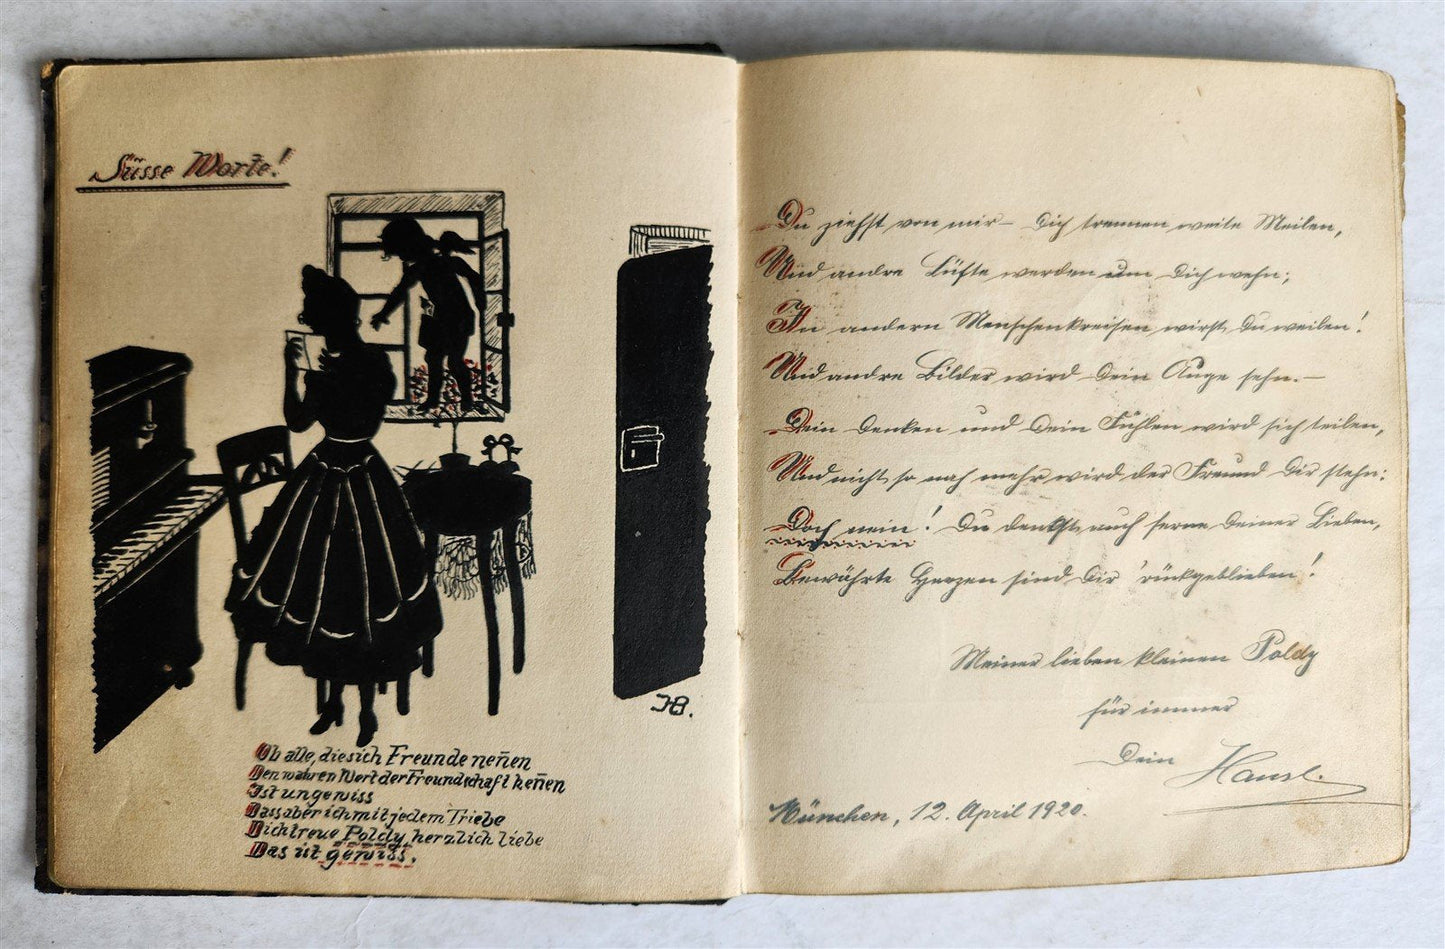 Süsse Worte!
Ob alle, die sich Freunde nen̄en
Den wahren Wert der Freundschaft ken̄en
Ist ungewiss
Dass aber ich mit jedem Triebe
Dich treue Poldy herzlich liebe
Das ist gewiss.
HB.
Du ziehst von mir – Dich trennen weite Meilen,
Und andre Lüfte werden um Dich wehn;
In andern Menschenkreisen wirst Du weilen!
Und andre Bilder wird Dein Auge sehn. –
Dein Denken und Dein Fühlen wird sich teilen,
Und nicht so nah mehr wird der Freund Dir stehn:
Doch nein! Du denkst auch ferne Deiner Lieben,
Bewährte Herzen sind Dir 'rückgeblieben!
Meiner lieben kleinen Poldy
für immer
Dein Hansl.
München, 12. April 1920.